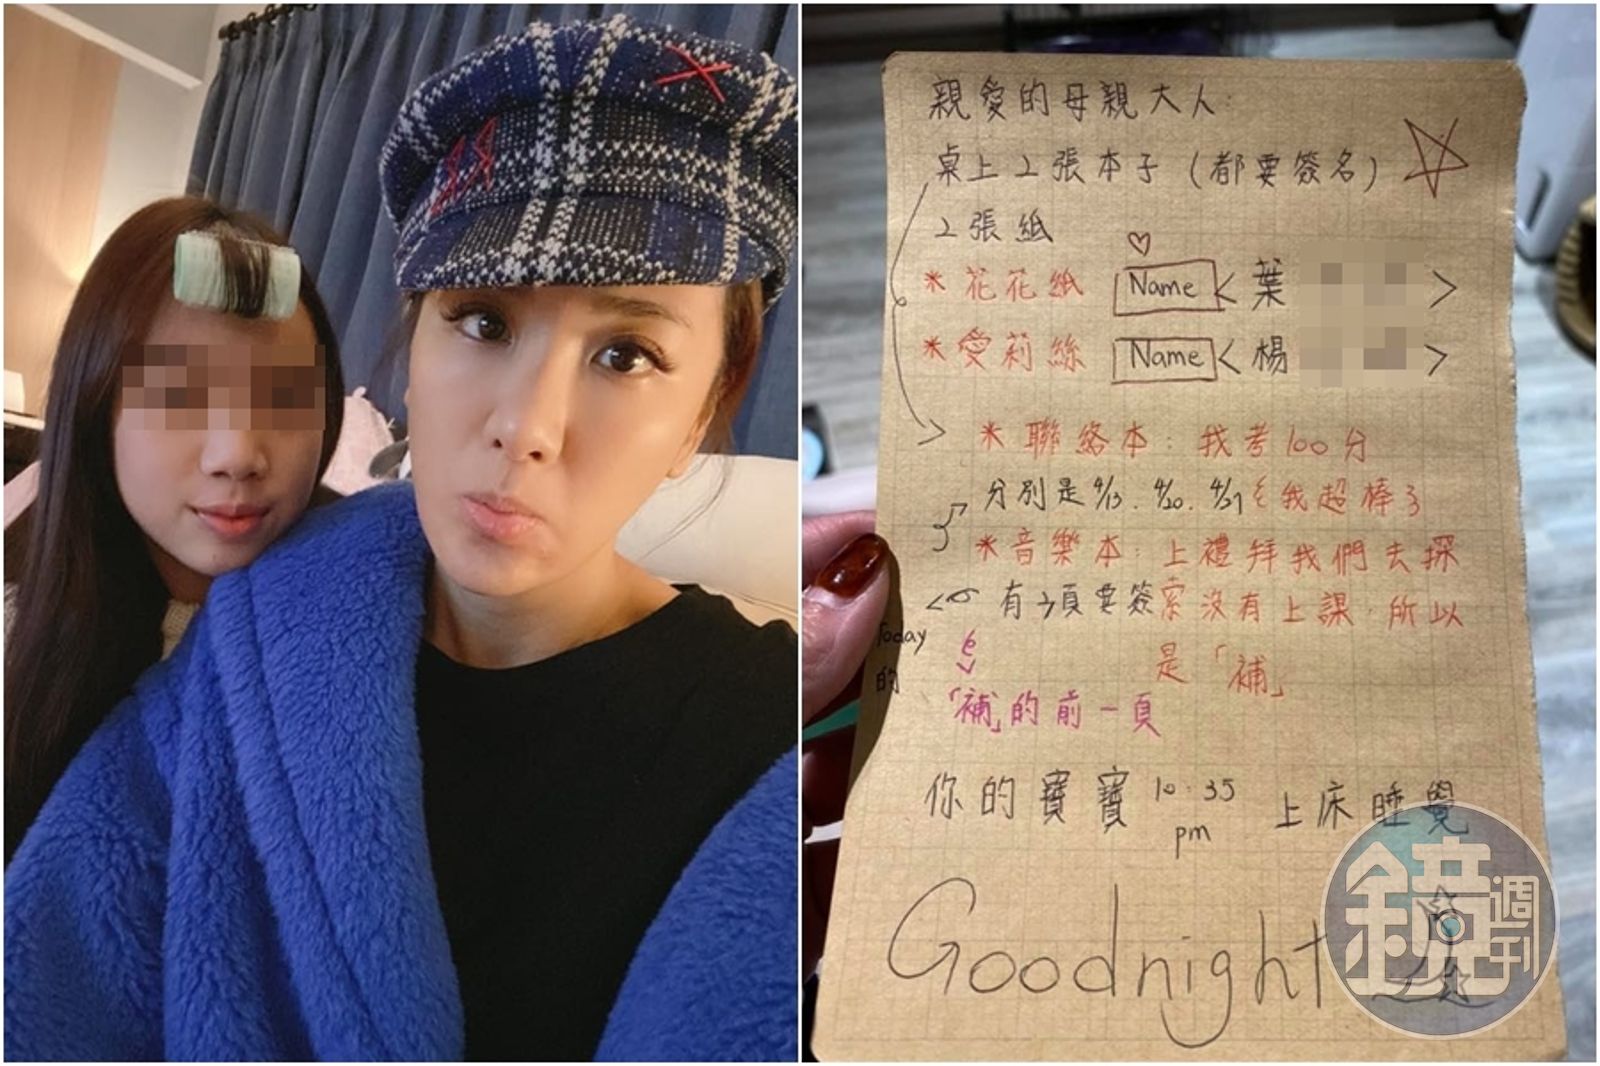 親愛的母親大人:
桌上2張本子(都要簽名)
2張紙
*花花紙 Name <葉 >
*愛莉絲 Name <楊 >
*聯絡本:我考100分
分別是4/13.4/20.4/27 我超棒ㄋ
*音樂本:上禮拜我們去探
有 頁要簽索沒有上課.所以
Today
的
是「補」
「補」的前一頁
你的寶寶10:35 pm 上床睡覺
Goodnight
鏡週刊